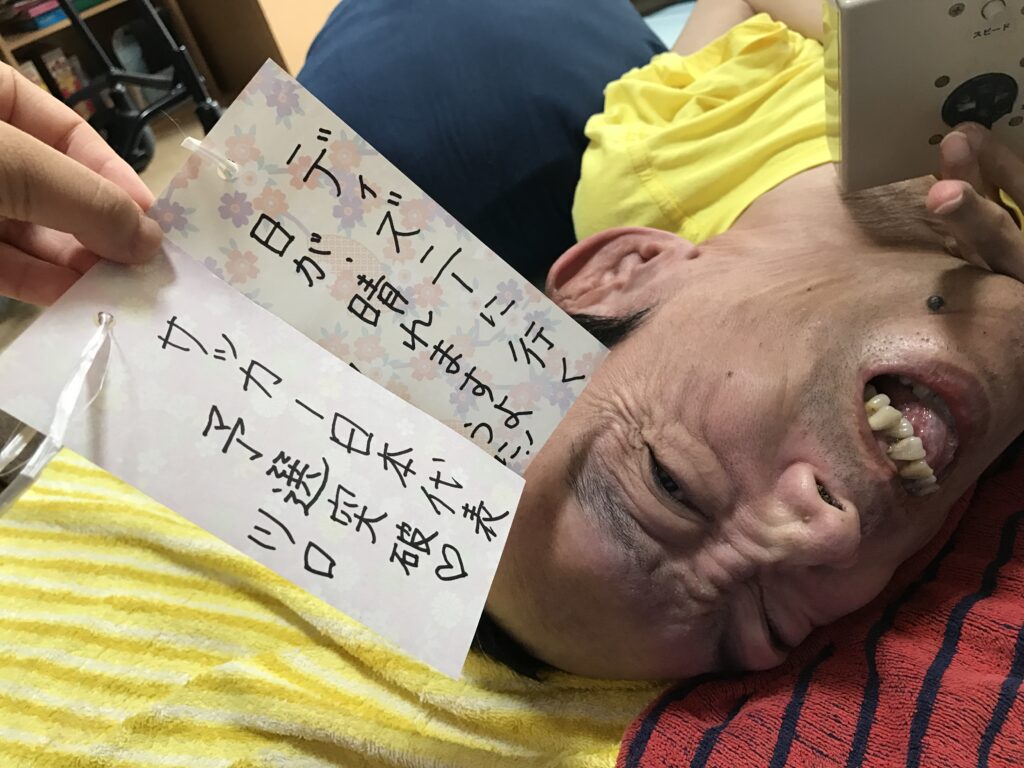 ディズニーに行く
日が、晴れますように
サッカー日本代表
予選突破♡
ツロ